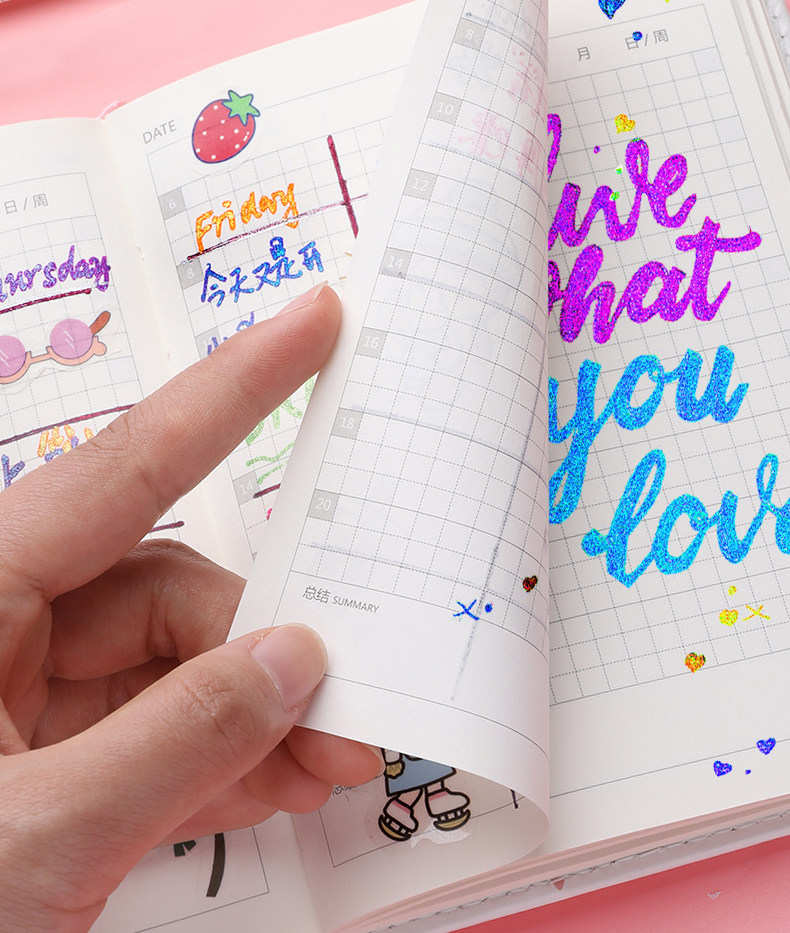 日 / 周
DATE
6
Friday
8
今天又是开
14
8
10
12
14
16
18
20
总结 SUMMARY
月 日 / 周
live
what
you
love